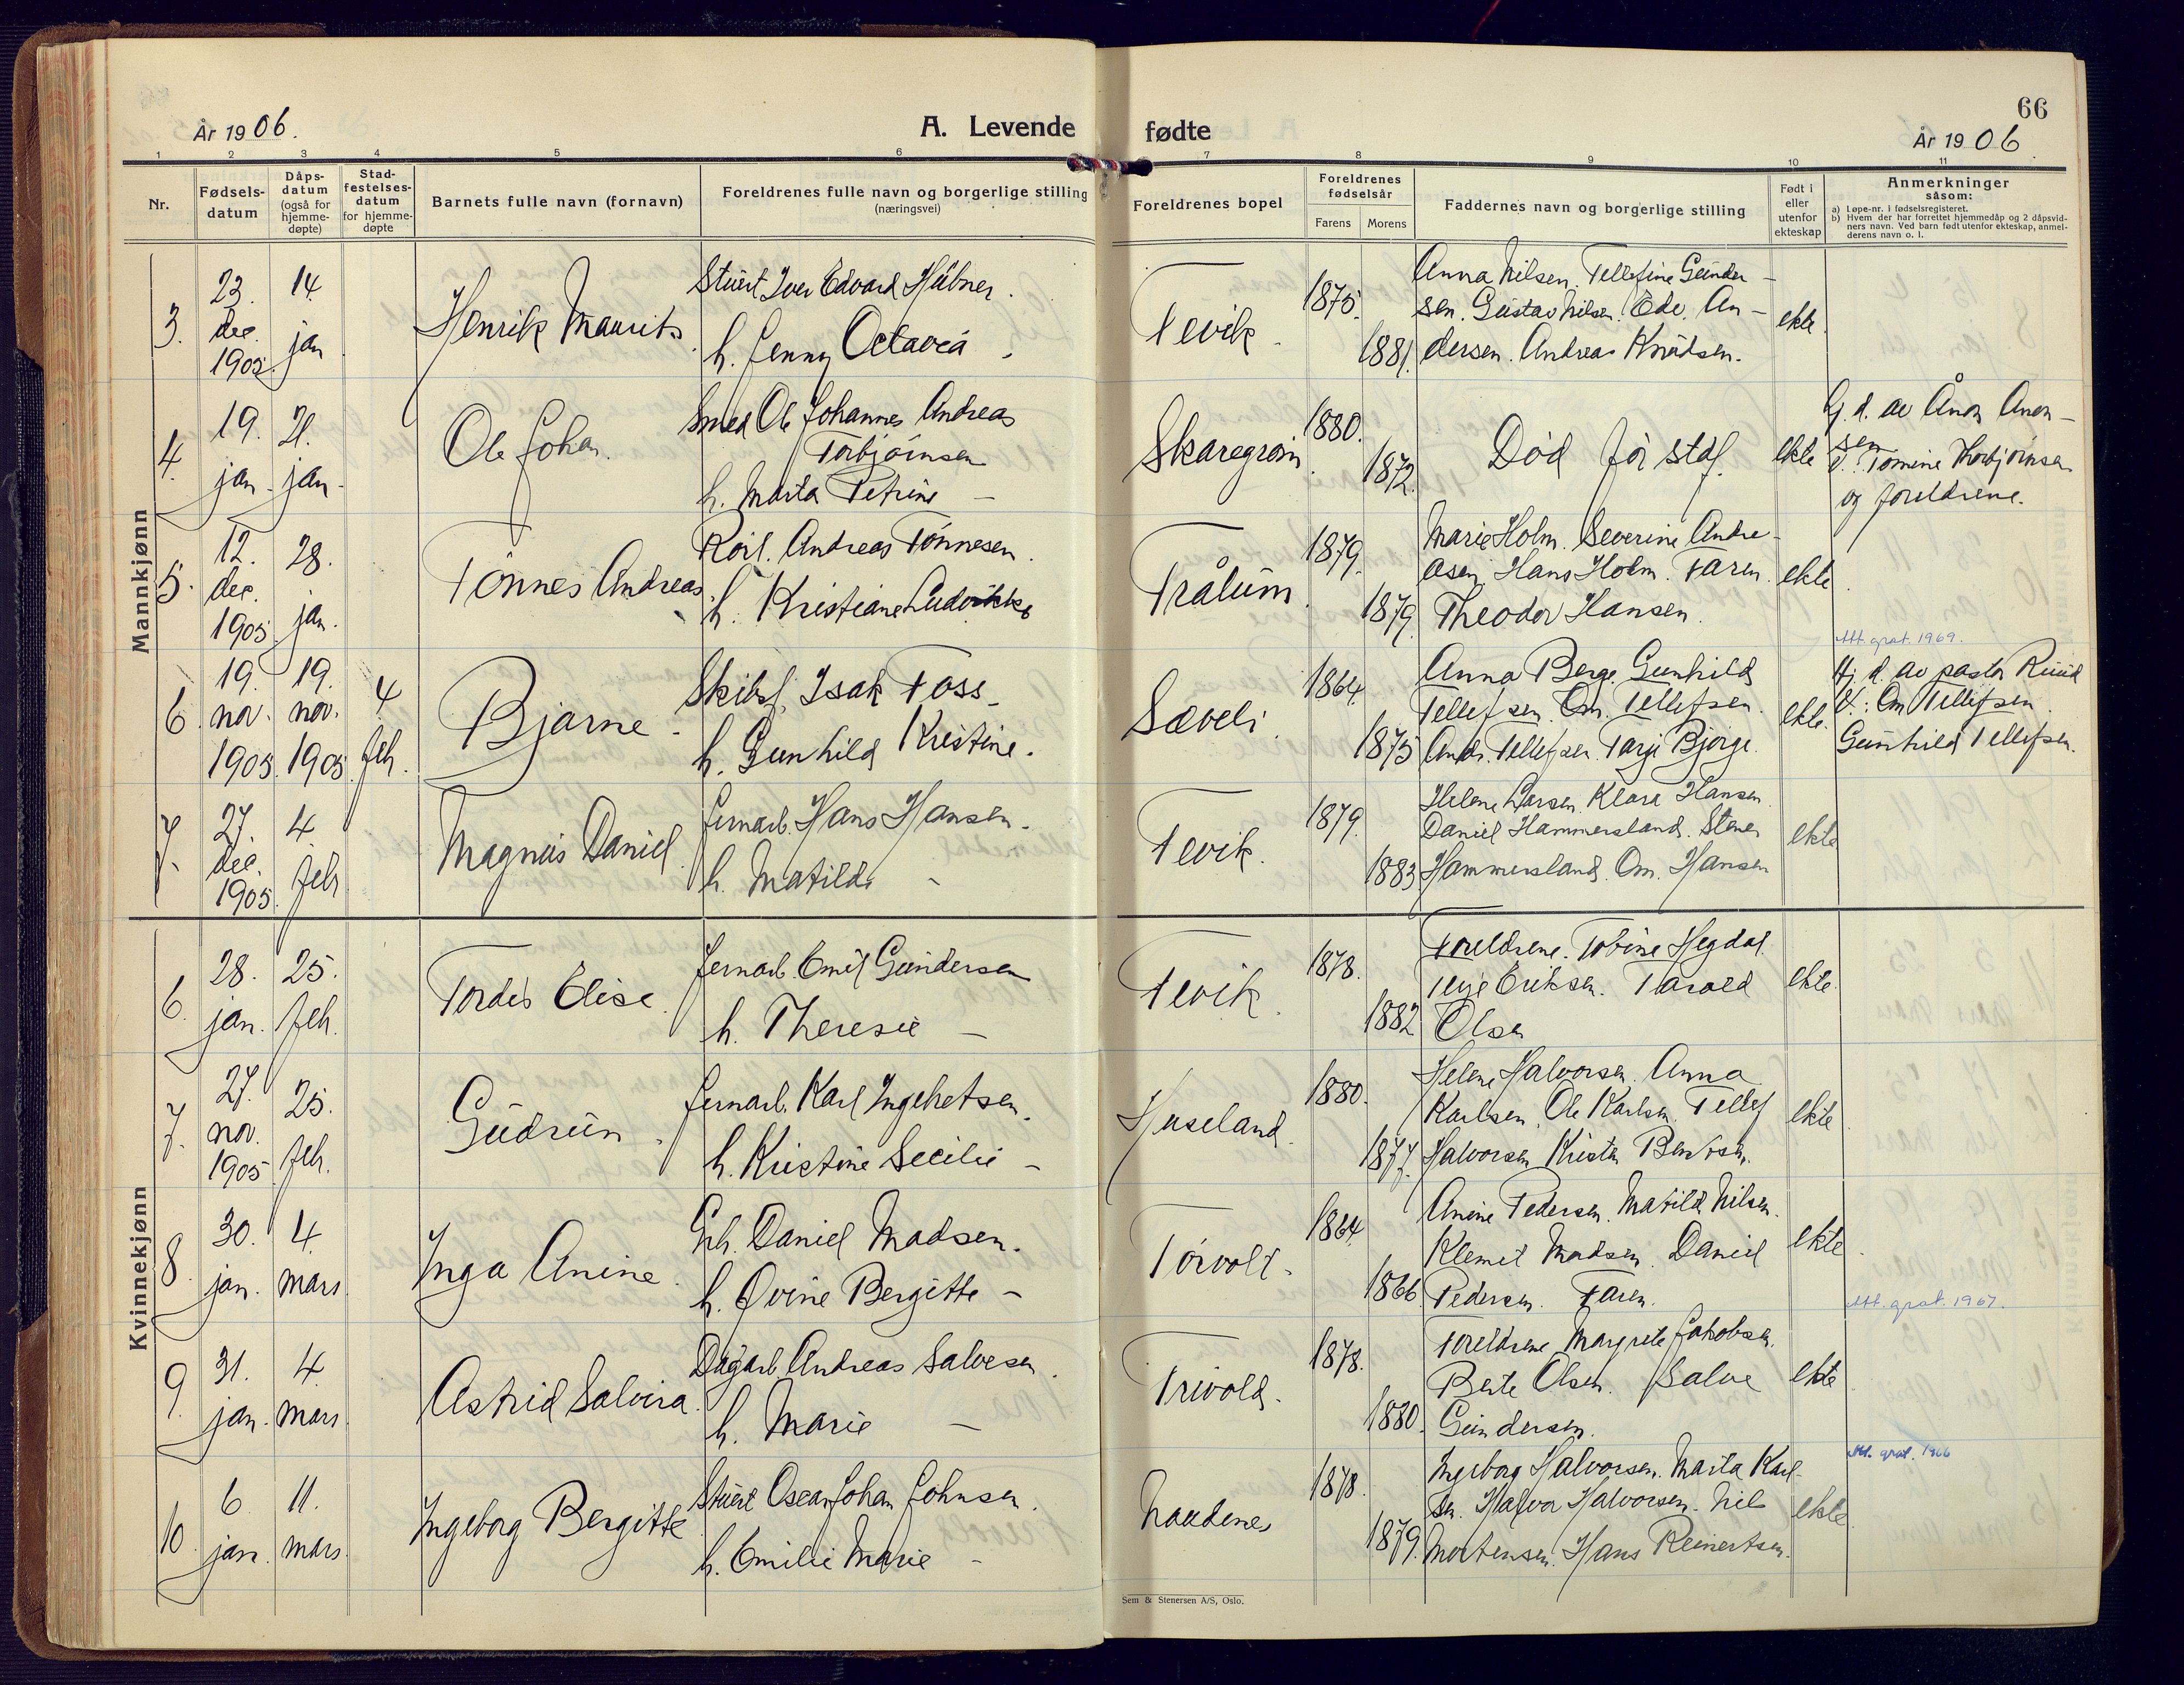 66
År 1906.
A. Levende fødte
År 1906
1 2 3 4 5 6 7 8 9 10 11
Nr.
Fødsels-
datum
Dåps-
datum
(også for
hjemme-
døpte)
Stad-
festelses-
datum
for hjemme-
døpte
Barnets fulle navn (fornavn)
Foreldrenes fulle navn og borgerlige stilling
(næringsvei)
Foreldrenes bopel
Foreldrenes
fødselsår
Farens Morens
Faddernes navn og borgerlige stilling
Født i
eller
utenfor
ekteskap
Anmerkninger
såsom:
a) Løpe-nr. i fødselsregisteret.
b) Hvem der har forrettet hjemmedåp og 2 dåpsvid-
ners navn. Ved barn født utenfor ekteskap, anmel-
derens navn o. l.
Mannkjønn
3.
23.
dec.
1905.
14.
jan.
Henrik Maurits
Stuert Iver Edvard Hübner.
h. Jenny Octavia
Fevik.
1875.
1881.
Anna Nilsen. Tellefine Gunder-
sen. Gustav Nilsen. Edv. An-
dersen. Andreas Knudsen.
ekte.
4.
19.
jan.
21.
jan.
Ole Johan.
Smed Ole Johannes Andreas
Torbjørnsen
h. Marta Petrine -
Skaregrøm.
1880.
1872.
Død før staf.
ekte
Hj. d. av Ånon Anon-
sen
V.: Tomine Thorbjørnsen
og foreldrene.
5.
12.
dec.
1905.
28.
jan.
Tønnes Andreas.
Andreas Tønnesen.
h. Kristiane Ludvikke
Trålum.
1879.
1879.
Marie Holm. Severine Andre-
asen. Hans Holm. Faren.
Theodor Hansen.
ekte.
6.
19.
nov.
1905.
19.
nov.
1905.
4
feb.
Bjarne.
Skibsf. Isak Foss.
h. Gunhild Kristine.
Sæveli.
1864.
1875
Anna Berge. Gunhild
Tellefsen. Om. Tellefsen.
Andr. Tellefsen. Tarje Bjorge.
ekte.
Att. grat. 1969.
Hj. d. av pastor Ruud
V.: Om Tellefsen
Gunhild Tellefsen.
7.
27.
dec.
1905.
4.
feb
Magnus Daniel.
Jernarb. Hans Hansen.
h. Matilde -
Fevik.
1879.
1883
Helene Larsen. Klara Hansen.
Daniel Hammersland. Stener
Hammersland. Om. Hansen
ekte
Kvinnekjønn
6.
28.
jan.
25.
feb.
Tordis Elise.
Jernarb. Emil Gundersen
h. Theresie -
Fevik.
1878.
1882
Foreldrene. Tobine Hegdal.
Terje Eriksen. Tarald
Olsen
ekte.
7.
27.
nov.
1905
25.
feb.
Gudrun.
Jernarb. Karl Ingebretsen.
h. Kristine Secilie -
Huseland.
1880.
1877.
Helene Halvorsen. Anna
Karlsen. Ole Karlsen. Tellef
Halvorsen. Kristen Berntsen.
ekte
8.
30.
jan.
4.
mars.
Inga Anine.
Gbr. Daniel Madsen.
h. Ovine Bergitte -
Torvolt.
1864
1866.
Anine Pedersen. Matilde Nilsen.
Klemet Madsen. Daniel
Pedersen. Faren.
ekte.
Att. grat. 1967.
9.
31.
jan.
4.
mars.
Astrid Salvina.
Dagarb. Andreas Salvesen.
h. Marie -
Trivold.
1878.
1880.
Foreldrene Margrete Jakobsen.
Berte Olsen. Salve
Gundersen.
ekte
10.
6.
jan.
11.
mars.
Ingeborg Bergitte
Stuert Oscar Johan Johnsen.
h. Emilie Marie -
1878.
1879.
Ingeborg Halvorsen. Marta Karl-
sen. Halvor Halvorsen. Nils
Mortensen. Hans Reinertsen.
ekte.
Att. grat. 1966
Sem & Stenersen A/S, Oslo.